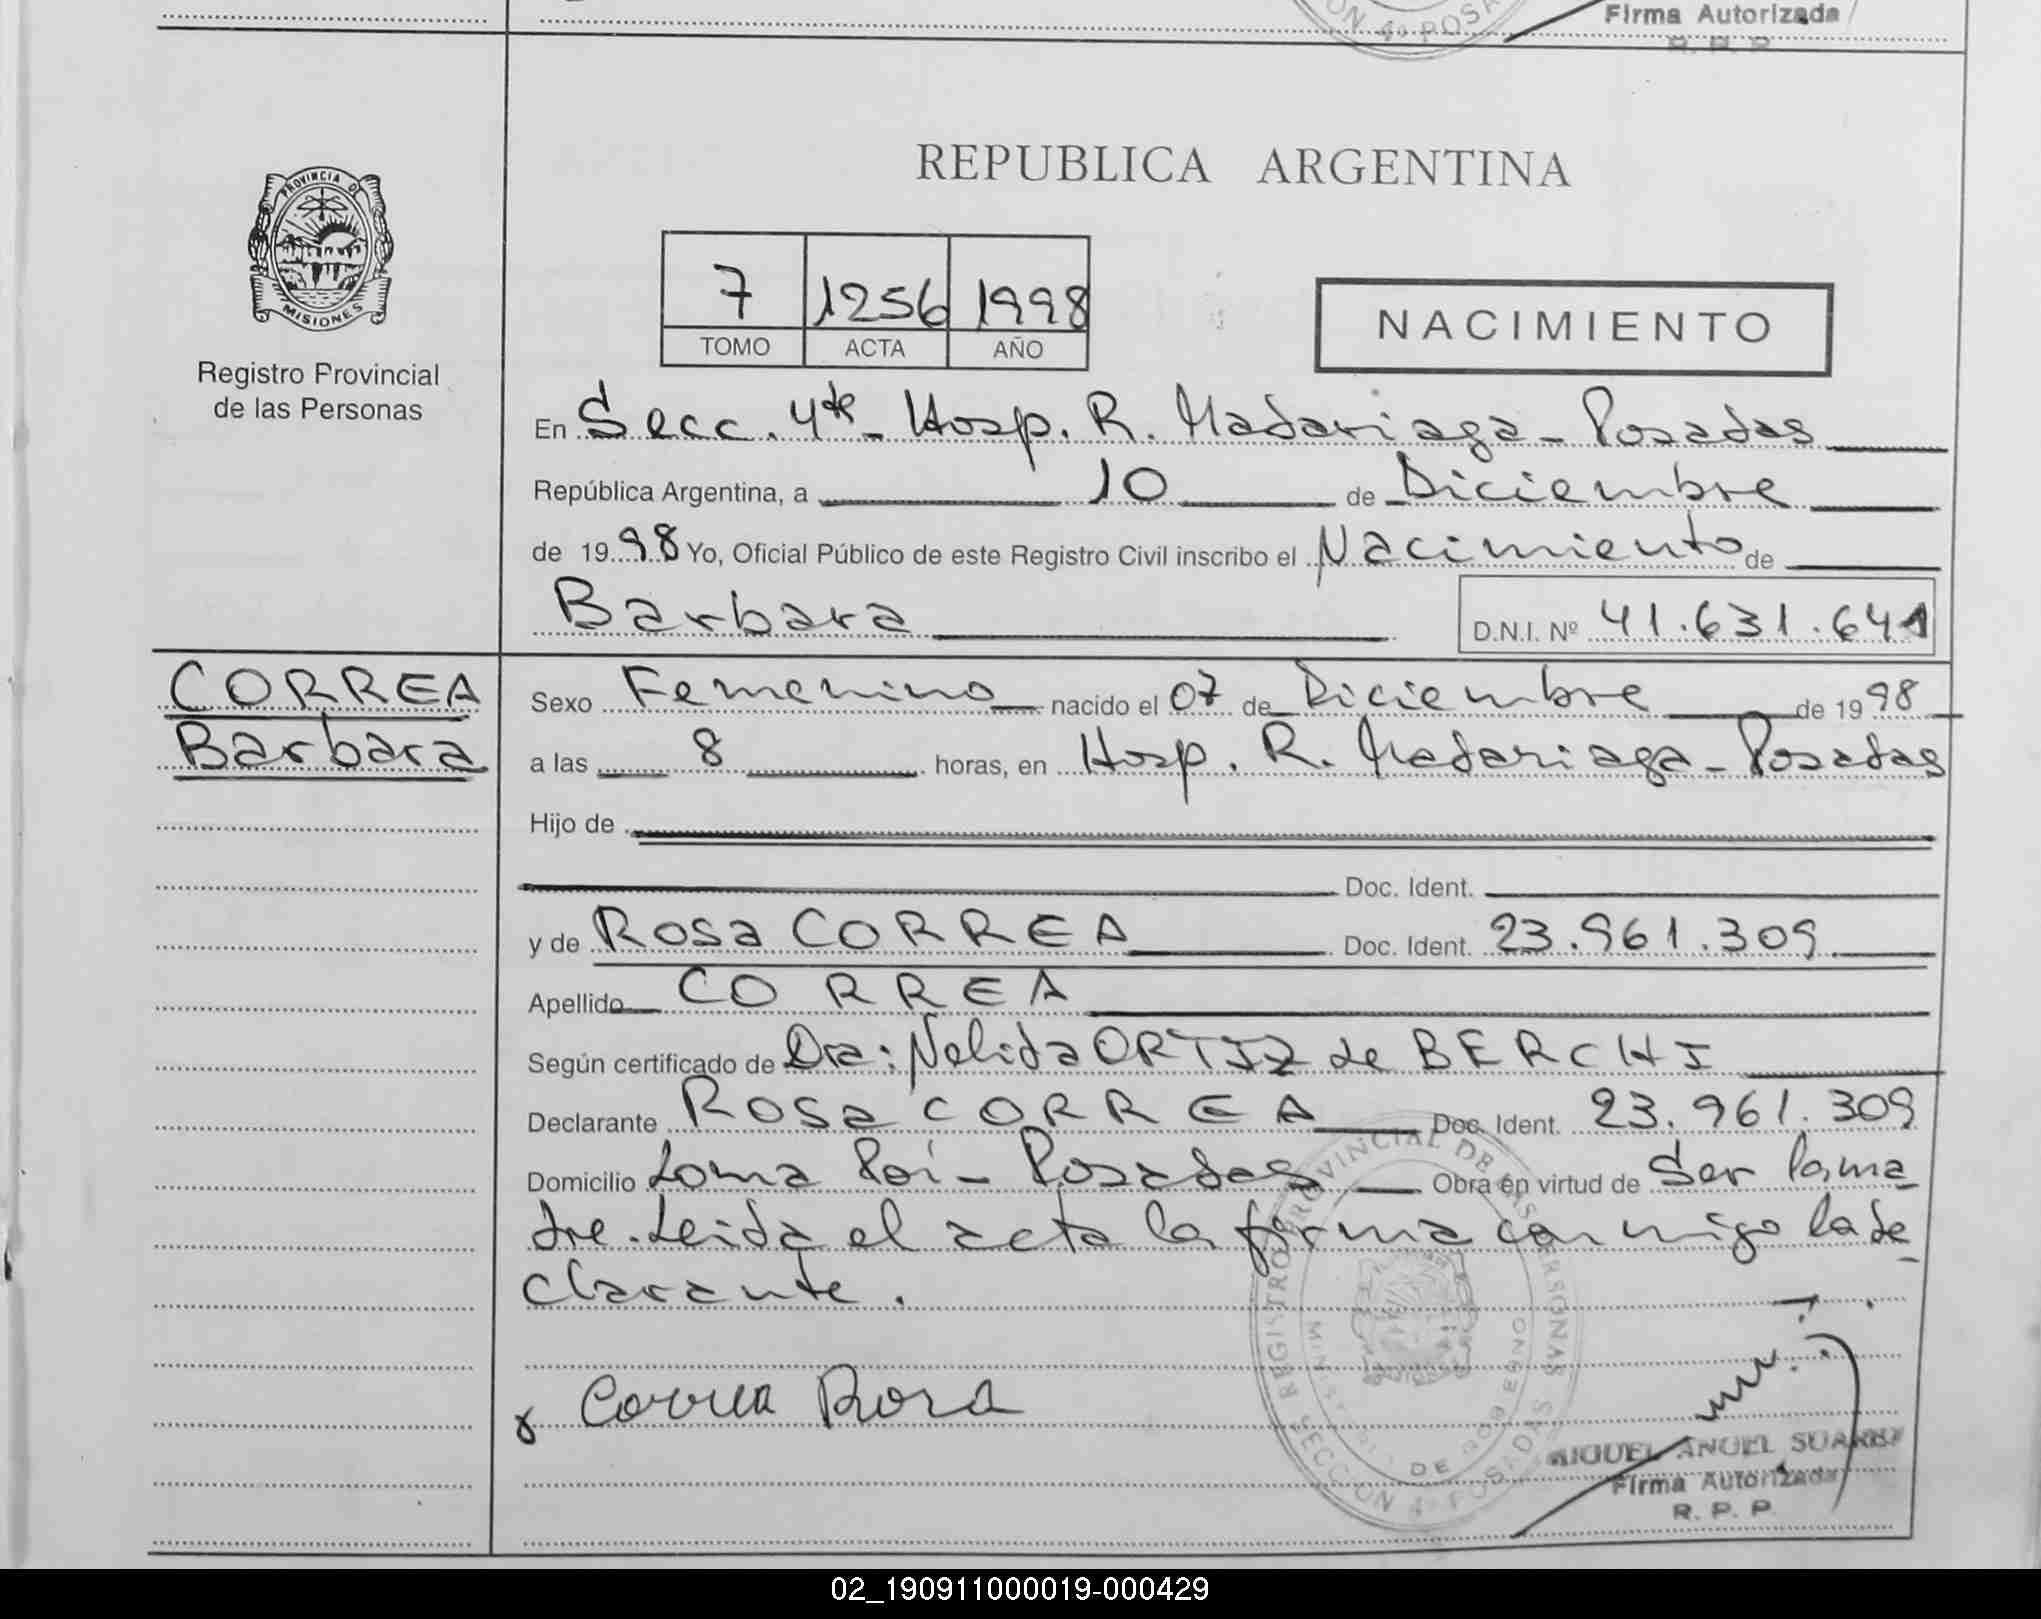 Firma Autorizada
R. P. P
REPUBLICA ARGENTINA
PROVINCIA DE
MISIONES
Registro Provincial
de las Personas
7 1256 1998
TOMO ACTA AÑO
NACIMIENTO
En Secc. 4ta - Hosp. R. Madariaga - Posadas
República Argentina, a 10 de Diciembre
de 1998 Yo, Oficial Público de este Registro Civil inscribo el Nacimiento de
Barbara D.N.I. Nº 41.631.641
CORREA
Barbara
Sexo Femenino nacido el 07 de Diciembre de 1998
a las 8 horas, en Hosp. R. Madariaga - Posadas
Hijo de
Doc. Ident.
y de Rosa CORREA Doc. Ident. 23.961.309
Apellido CORREA
Según certificado de Dra: Nelida ORTIZ de BERCHI
Declarante Rosa CORREA Doc. Ident. 23.961.309
Domicilio Loma Poi - Posadas Obra en virtud de Ser la ma
dre. Leida el acta la firma conmigo la de
clarante.
Correa Rosa
REGISTRO PROVINCIAL DE LAS PERSONAS
MINISTERIO DE GOBIERNO
SECCION 4º POSADAS
MIGUEL ANGEL SUAREZ
Firma Autorizada
R. P. P.
02_190911000019-000429